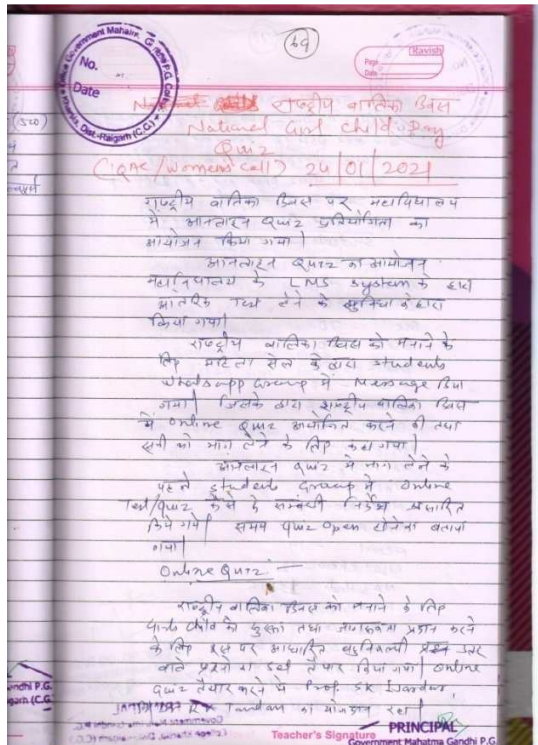 69
Ravish
Page
Date
Government Mahatma Gandhi P.G. College
No.
Date
Dist.-Raigarh (C.G.)
National राष्ट्रीय बालिका दिवस
National Girl Child Day
Quiz
(IQAC/Womens' Cell) 24/01/2021
राष्ट्रीय बालिका दिवस पर महाविद्यालय
में आनलाइन Quiz प्रतियोगिता का
आयोजन किया गया|
आनलाइन Quiz का आयोजन
महाविद्यालय के LMS System के द्वारा
आंतरिक Test लेने के सुविधा के द्वारा
किया गया|
राष्ट्रीय बालिका दिवस को मनाने के
लिए महिला सेल के द्वारा students
Whatsapp Group में Message दिया
गया| जिसके द्वारा राष्ट्रीय बालिका दिवस
में online Quiz आयोजित करने की तथा
सभी को भाग लेने के लिए कहा गया|
आनलाइन Quiz में भाग लेने के
पहले students Group में online
Test/Quiz के सम्बंधी निर्देश प्रसारित
किये गये| समय Quiz open होने का बताया
गया|
Online Quiz :—
राष्ट्रीय बालिका दिवस को मनाने के लिए
Girls child को सुरक्षा तथा जागरूकता प्रदान करने
के लिए इस पर आधारित बहुविकल्पी प्रश्न उत्तर
वाले प्रश्नो का Set तैयार किया गया| online
Quiz तैयार करने में Prof. SK
Tandan का योगदान रहा|
Teacher's Signature
PRINCIPAL
Government Mahatma Gandhi P.G.